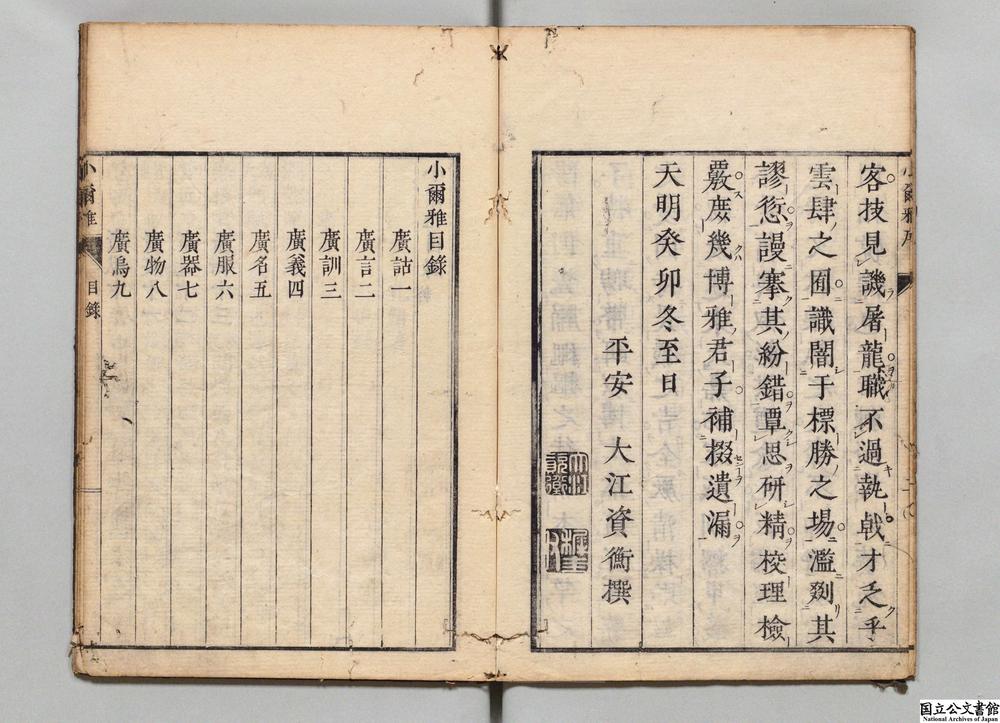 客技見譏屠龍職不過執戟才乏乎
雲肆之囿識闇于標勝之場濫剟其
謬愆謾搴其紛錯覃思研精校理檢
覈庶幾博雅君子補掇遺漏
天明癸卯冬至日
平安 大江資衡撰
小爾雅目錄
廣詁一
廣言二
廣訓三
廣義四
廣名五
廣服六
廣器七
廣物八
廣鳥九
小爾雅 目錄
国立公文書館
National Archives of Japan